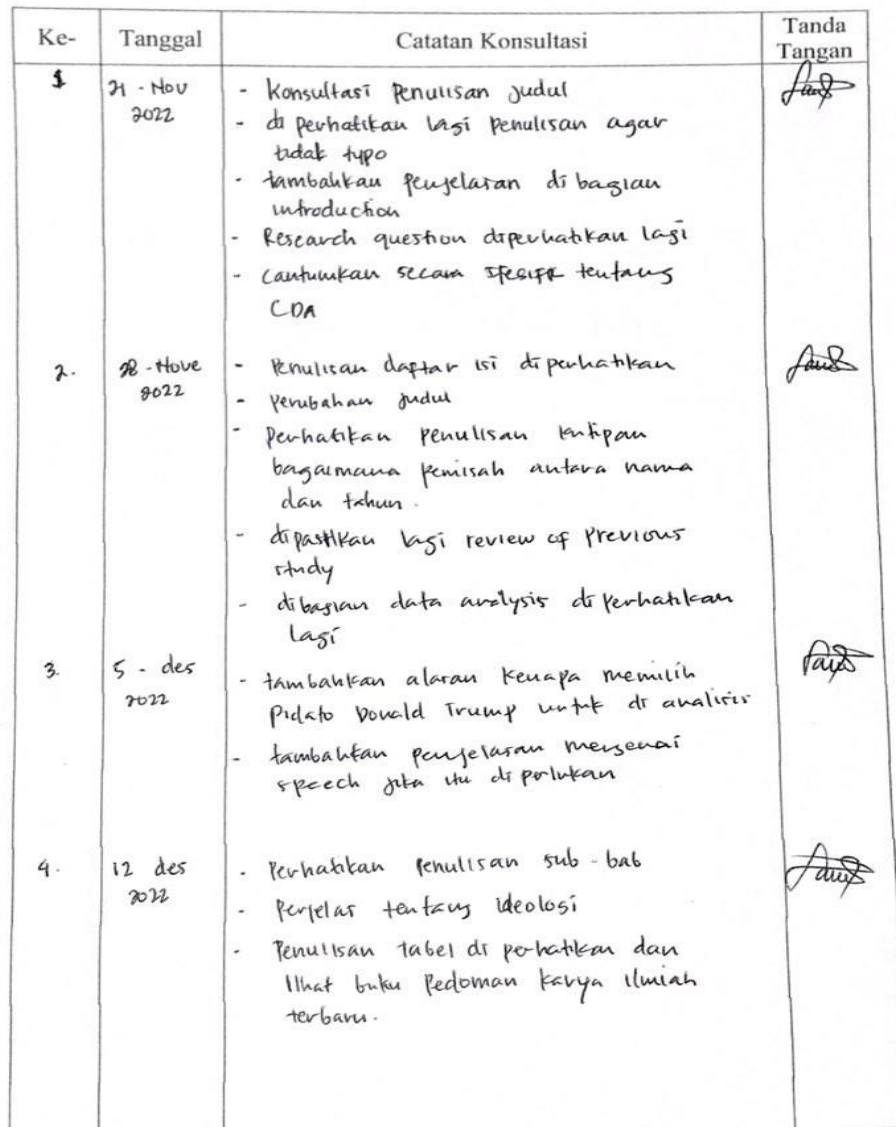 Ke- Tanggal Catatan Konsultasi Tanda Tangan
1 21 - Nov 2022 - Konsultasi Penulisan Judul
- di perhatikan lagi penulisan agar
tidak typo
- tambahkan penjelasan di bagian
introduction
- Research question diperhatikan lagi
- Cantumkan secara spesifik tentang
CDA
2. 28 - Nove 2022 - Penulisan daftar isi di perhatikan
- Perubahan judul
- Perhatikan penulisan kutipan
bagaimana pemisah antara nama
dan tahun.
- dipastikan lagi review of previous
study
- dibagian data analysis di perhatikan
lagi
3. 5 - des 2022 - tambahkan alasan kenapa memilih
Pidato Donald Trump untuk di analisis
- tambahkan penjelasan mengenai
speech jika itu di perlukan
4. 12 des 2022 - Perhatikan penulisan sub - bab
- Perjelas tentang ideologi
- Penulisan tabel di perhatikan dan
lihat buku Pedoman karya ilmiah
terbaru.